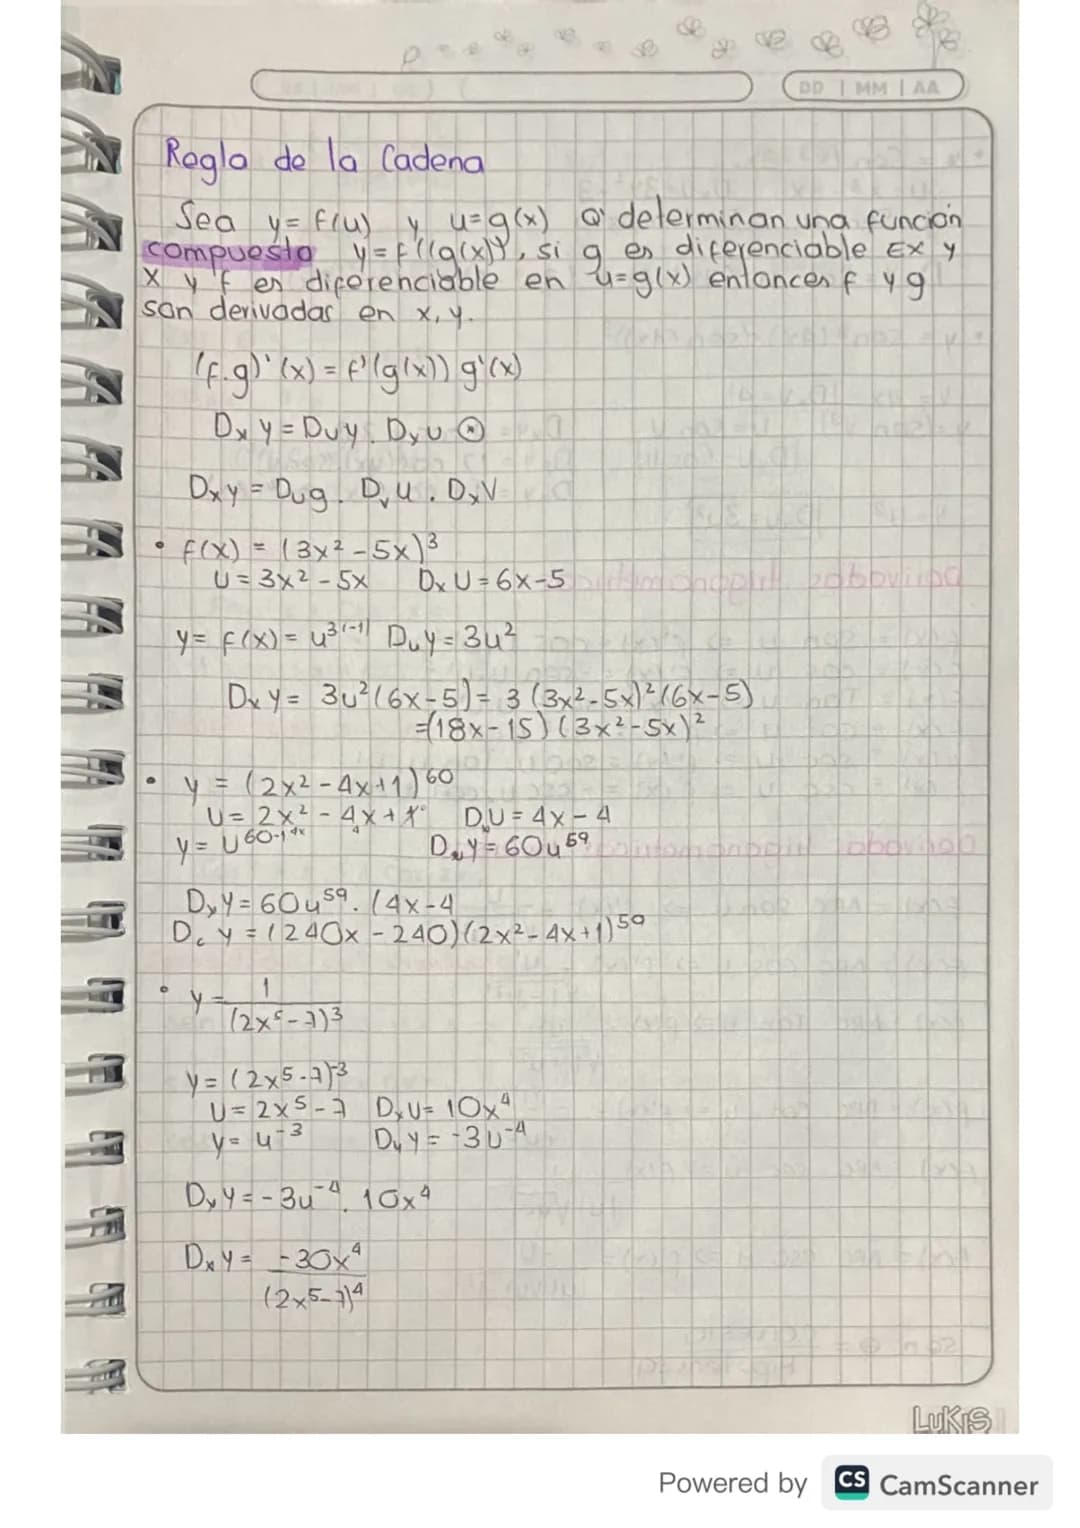 DD | MM | AA
Regla de la Cadena
Sea y= f(u) y u=g(x) Q' determinan una función
compuesta y=f'((g(x)), si g es diferenciable EX y
X y f es diferenciable en u=g(x) entonces f y g
son derivadas en x,y.
(f.g)'(x) = f'(g(x)) g'(x)
Dx y = Duy . Dxu ⊛
Dxy = Dug . Dvu . DxV
• f(x) = (3x² - 5x)³
U = 3x² - 5x   Dx U = 6x-5
y= f(x) = u³⁽⁻¹⁾ Duy = 3u²
Dx y = 3u²(6x-5) = 3 (3x²-5x)²(6x-5)
=(18x-15)(3x²-5x)²
• y = (2x² - 4x+1)⁶⁰
U = 2x² - 4x +   DxU = 4x - 4
y = U⁶⁰⁻¹   Duy = 60u⁵⁹
Dxy = 60u⁵⁹ . (4x-4
Dx y = (240x - 240)(2x² - 4x+1)⁵⁹
• y = 1
(2x⁵-7)³
y = (2x⁵-7)⁻³
U = 2x⁵-7   DxU = 10x⁴
y = u⁻³   Duy = -3u⁻⁴
Dxy = -3u⁻⁴. 10x⁴
Dxy = -30x⁴
(2x⁵-7)⁴
LUKIS
Powered by CS CamScanner